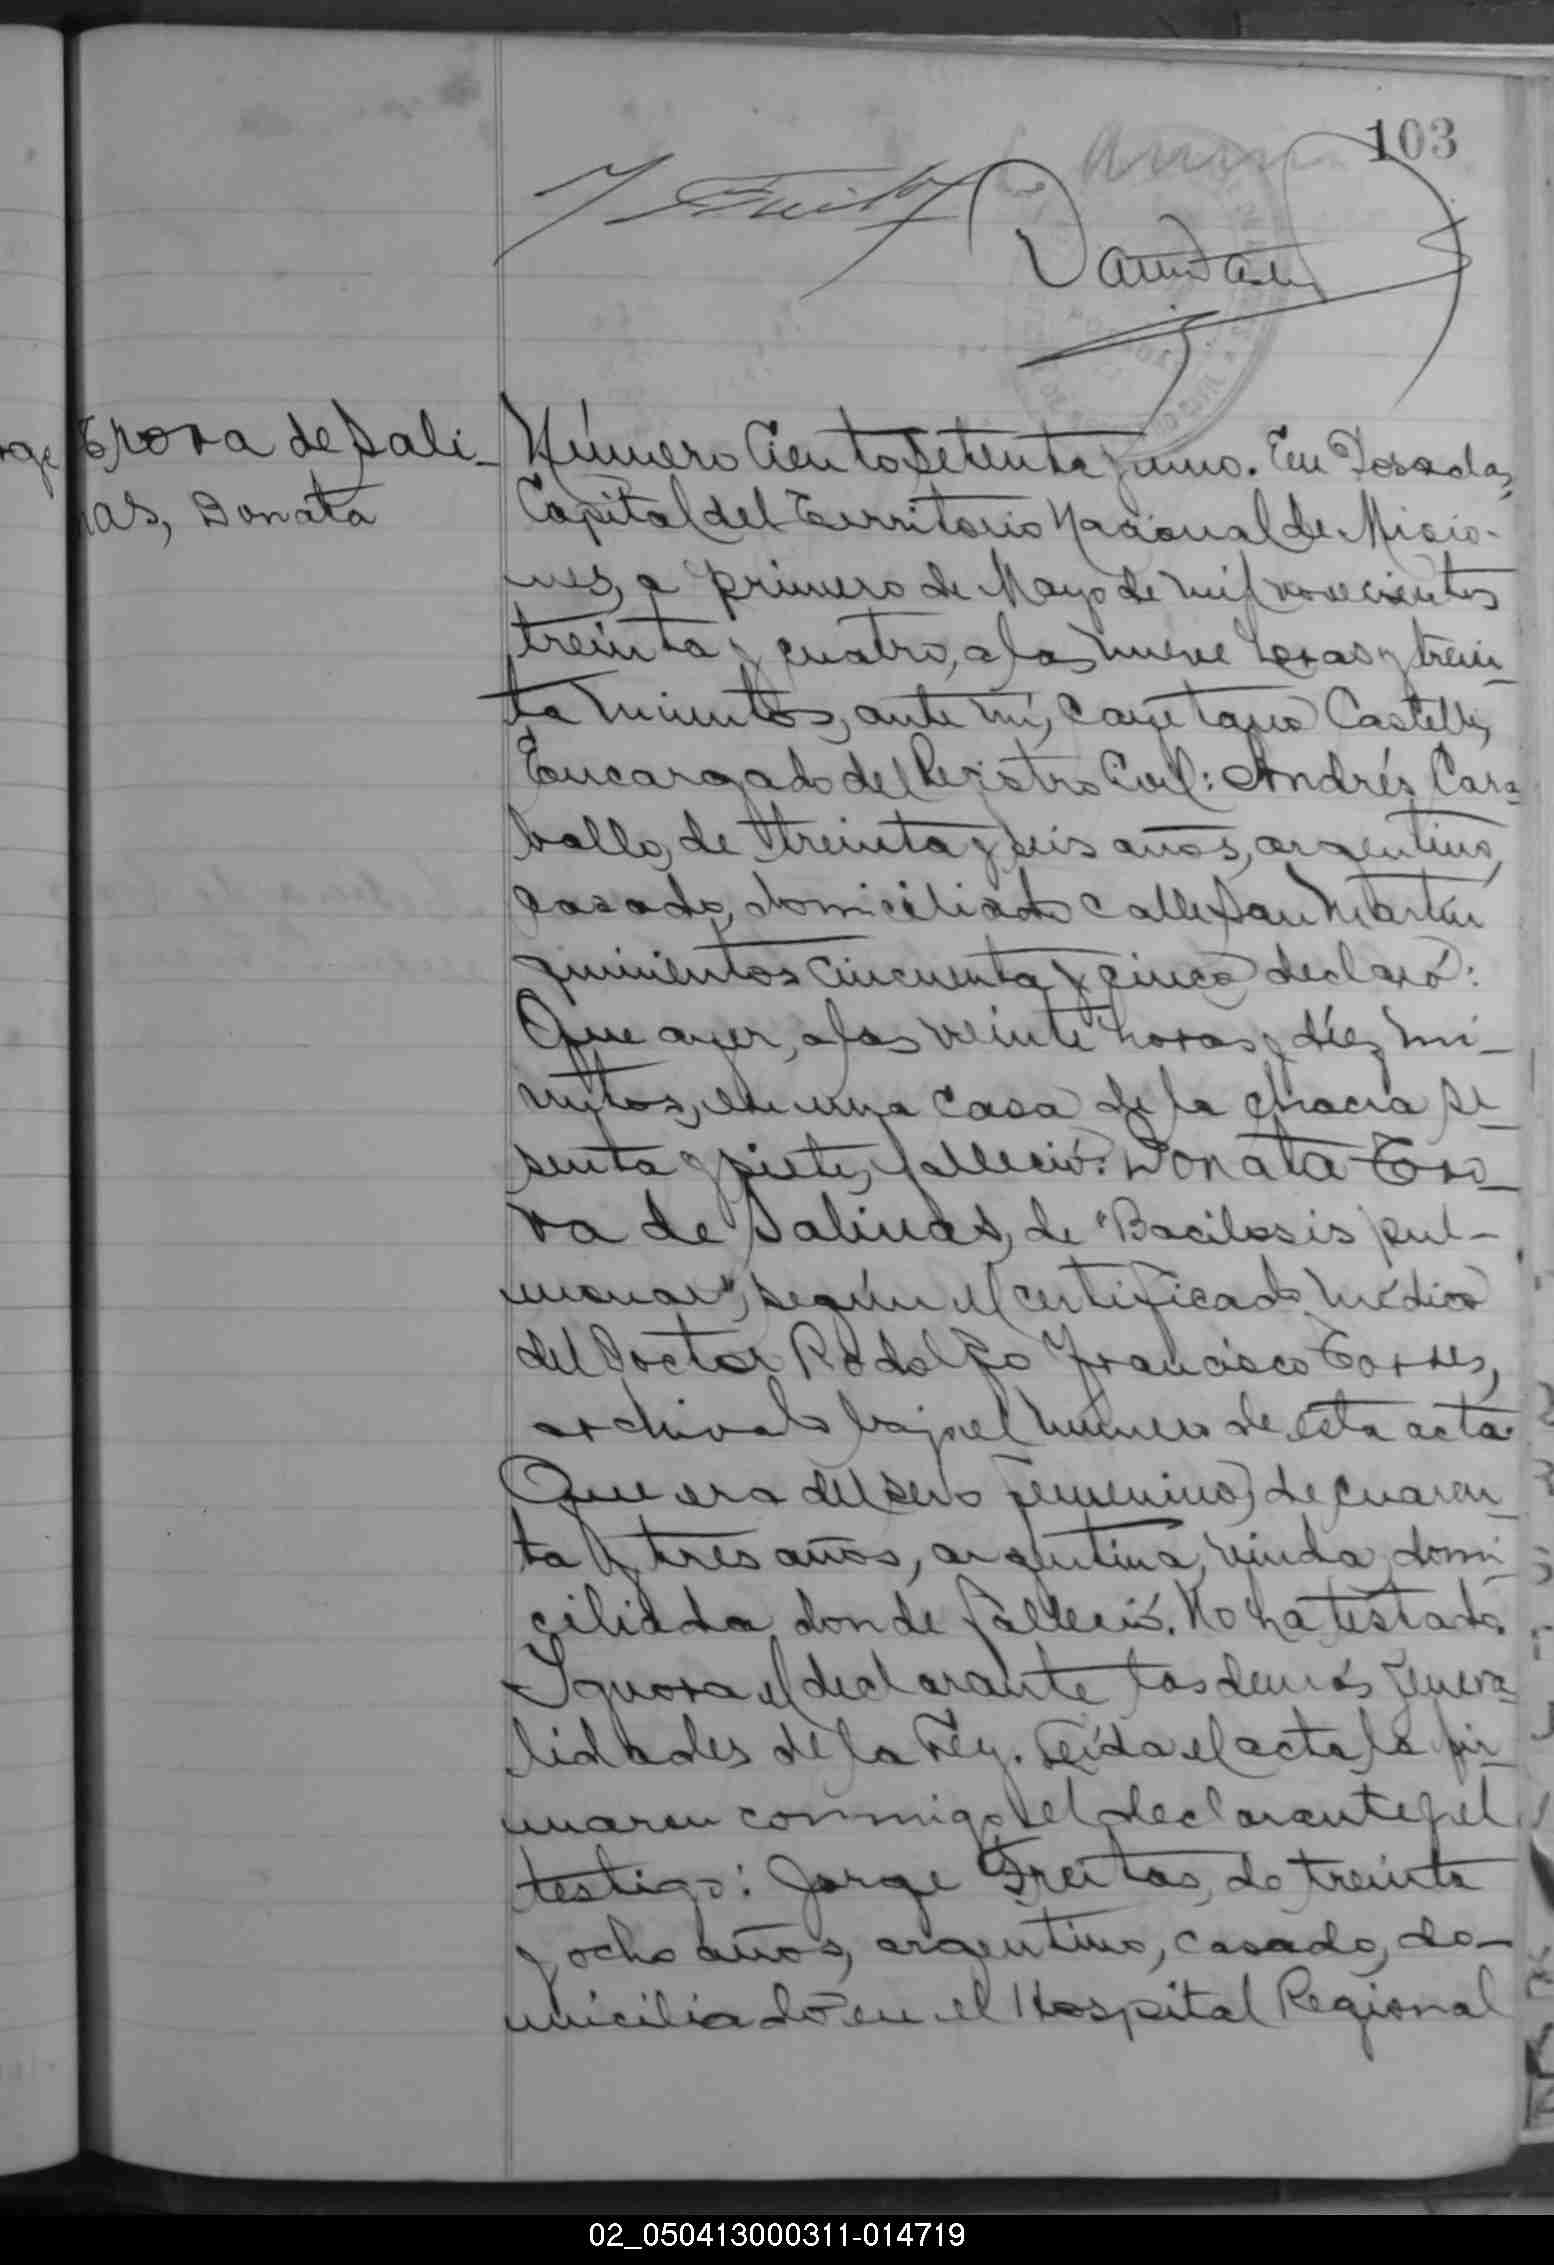 103
Erova de Sali-
nas, Donata
Número Ciento setenta y uno. En Posadas,
Capital del Territorio Nacional de Misio-
nes, a primero de Mayo de mil novecientos
treinta y cuatro, a las nueve horas y trein-
ta minutos, ante mí, Cayetano Castelli,
Encargado del Registro Civil: Andrés Cara-
ballo, de treinta y seis años, argentino,
casado, domiciliado calle San Martín
quinientos cincuenta y cinco declaró:
Que ayer, a las veinte horas y diez mi-
nutos, en una casa de la chacra se-
senta y siete, falleció: Donata Ero-
va de Salinas, de "Bacilosis pul-
monar", según el certificado médico
del Doctor Rodolfo Francisco Torres,
archivado bajo el número de esta acta.
Que era del sexo femenino, de cuaren-
ta y tres años, argentina, viuda, domi-
ciliada donde falleció. No ha testado.
Ignora el declarante las demás genera-
lidades de la Ley. Leída el acta, la fir-
maron conmigo el declarante y el
testigo: Jorge Freitas, de treinta
y ocho años, argentino, casado, do-
miciliado en el Hospital Regional
02_050413000311-014719